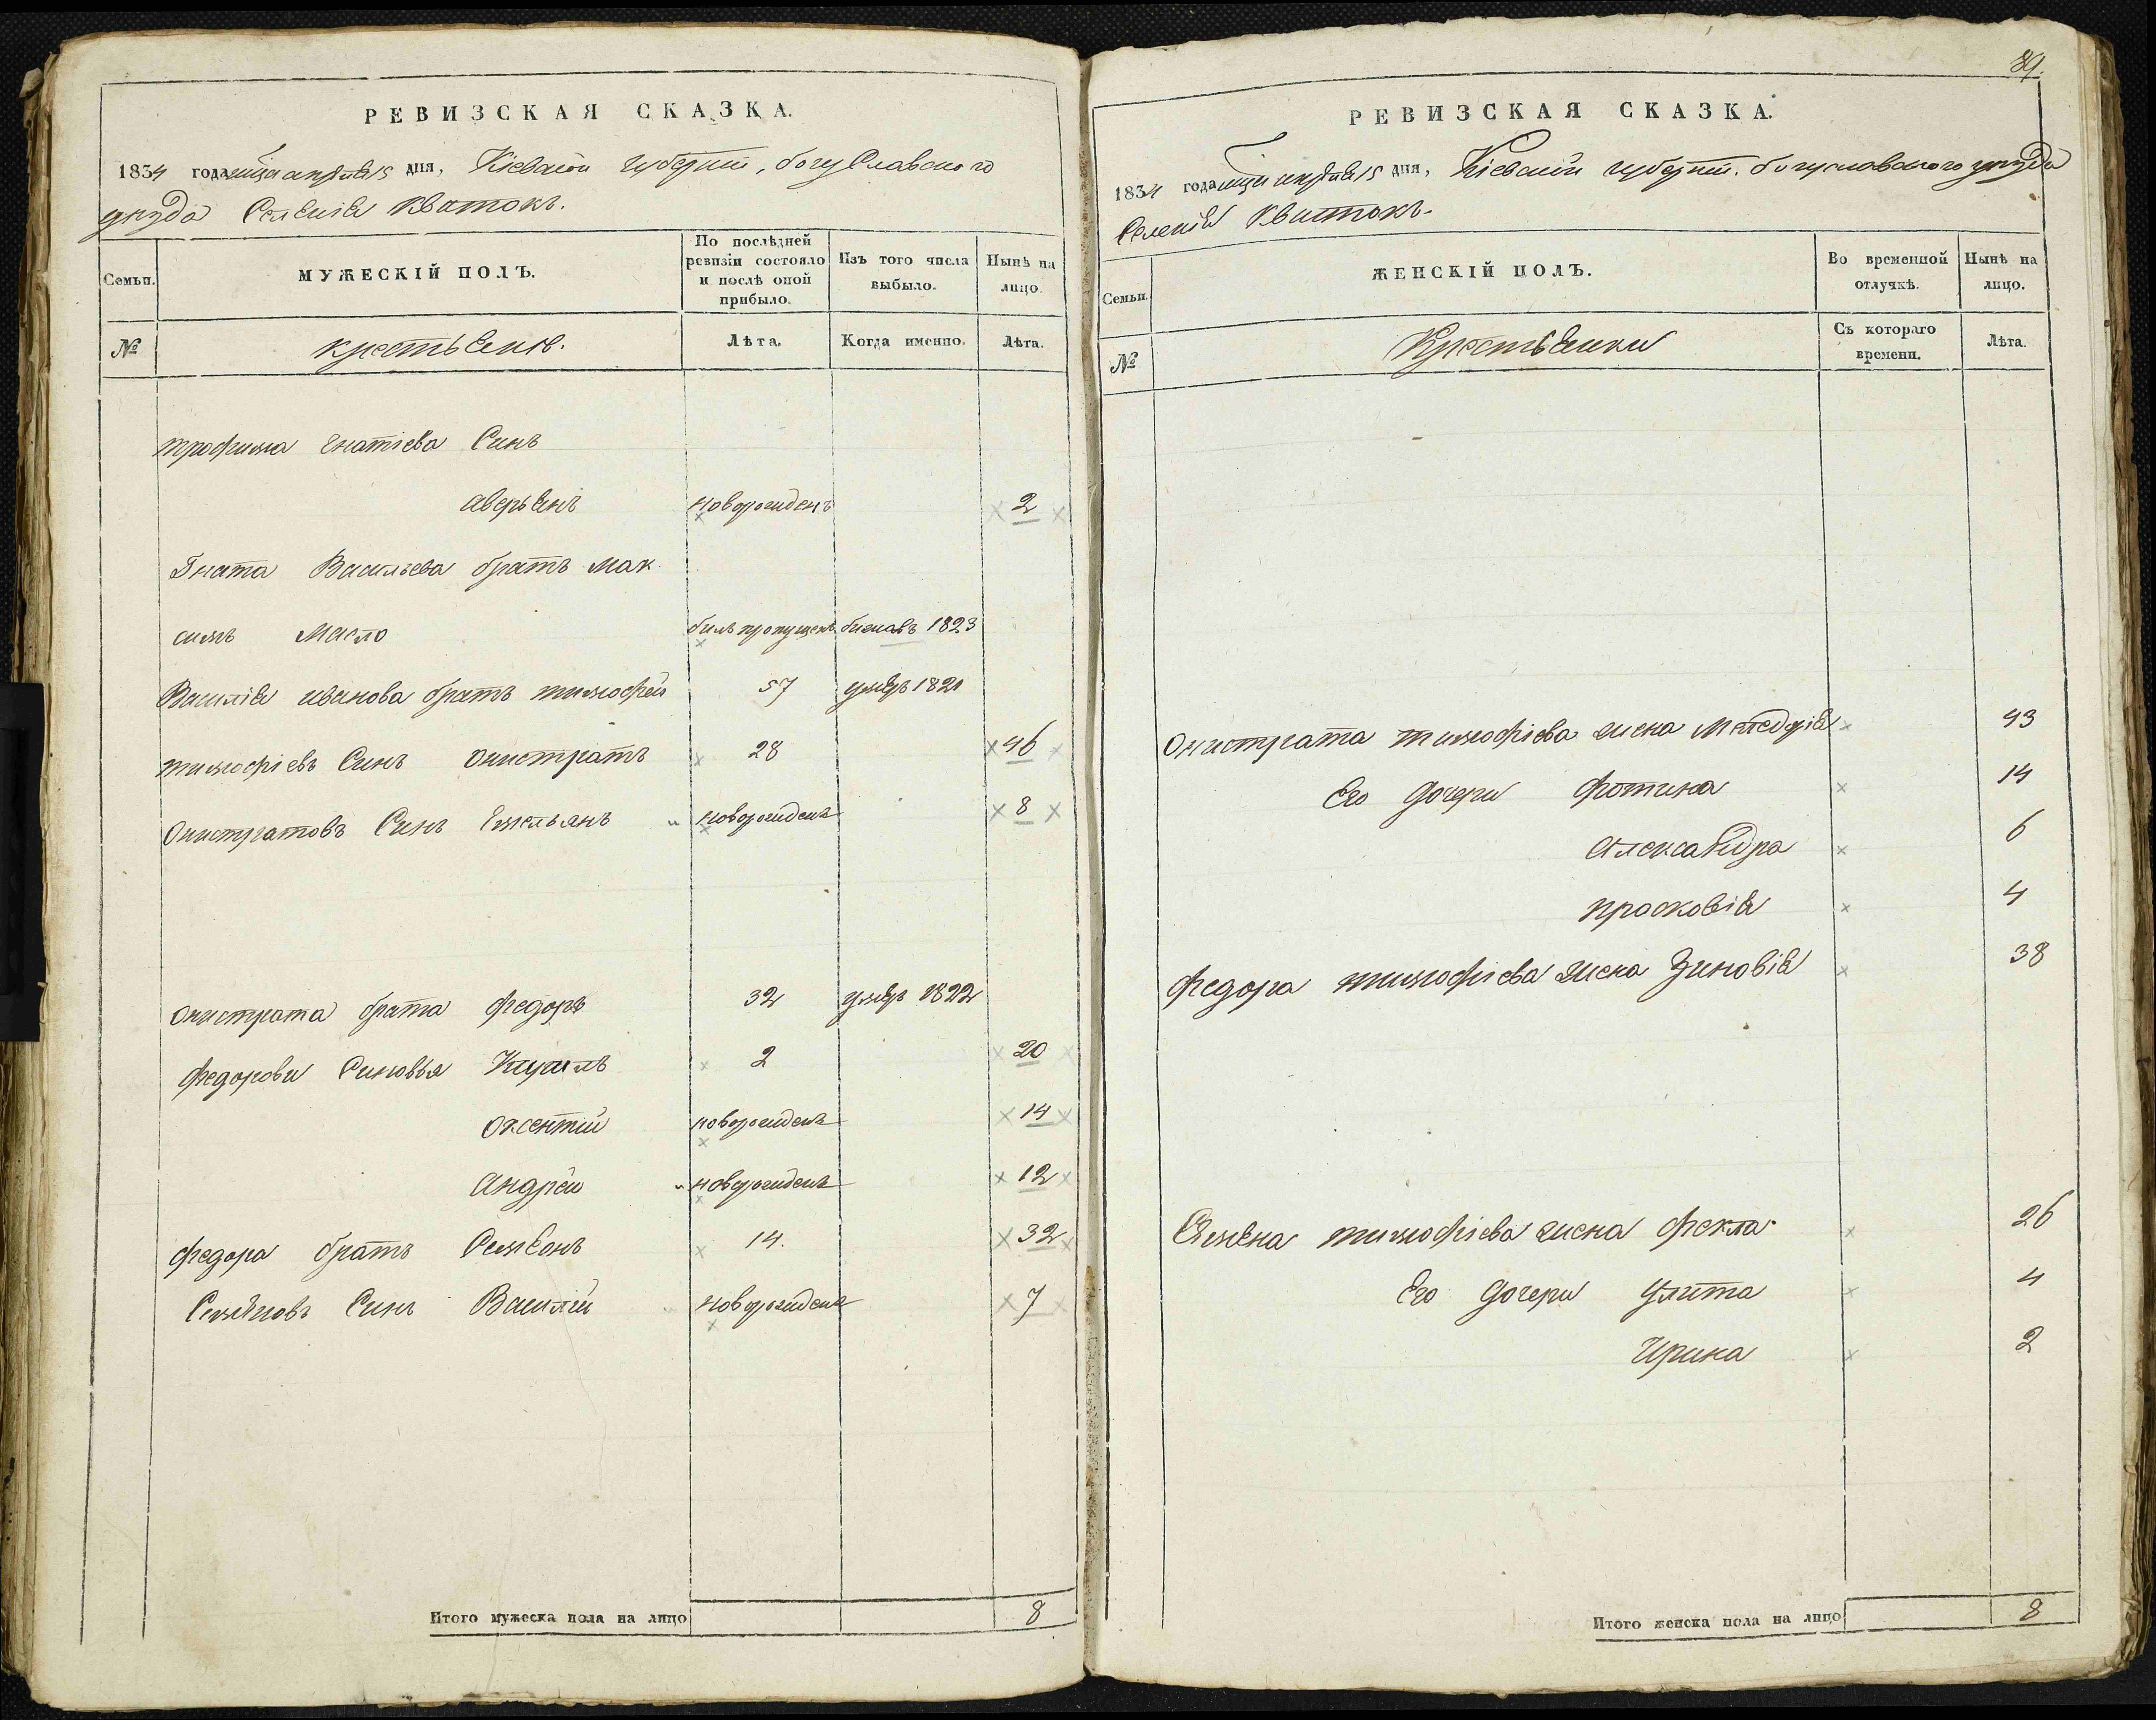 РЕВИЗСКАЯ СКАЗКА.
1834 года мца апреля 15 дня, Кіевской губерніи, богуславского
уезда Селенія Квитокъ.
Семьи.
МУЖЕСКІЙ ПОЛЪ.
По послѣдней ревизіи состояло и послѣ оной прибыло.
Изъ того числа выбыло.
Нынѣ на лицо.
№
крестьяне.
Лѣта.
Когда именно.
Лѣта.
трофима гнатіева Синъ
аверьянъ новорожденъ 2
Гната Васильева братъ мак
симъ Масло билъ пропущенъ 1823
Василія иванова братъ тимофей 57 умеръ 1821
тимофіевъ Синъ онистратъ 28 46
Онистратовъ Синъ Емельянъ новорожденъ 8
онистрата брата федоръ 32 умеръ 1822
федорови Синовья Кирилъ 2 20
оксентий новорожденъ 14
андрей новорожденъ 12
федора братъ Семіонъ 14. 32
Семіновъ Синъ Василій новорожденъ 7
Итого мужеска пола на лицо 8
89.
РЕВИЗСКАЯ СКАЗКА.
1834 года мца апреля 15 дня, Кіевской губерніи. богуславского уезда
Селенія Квитокъ.
Семьи.
ЖЕНСКІЙ ПОЛЪ.
Во временной отлучкѣ.
Нынѣ на лицо.
№
Крестьянки
Съ котораго времени.
Лѣта.
Онистрата тимофіева жена 43
Его дочери Фотина 14
Александра 6
просковія 4
федора тимофіева жена Зиновія 38
Семена тимофіева жена фекла 26
Его дочери Улита 4
Ирина 2
Итого женска пола на лицо 8